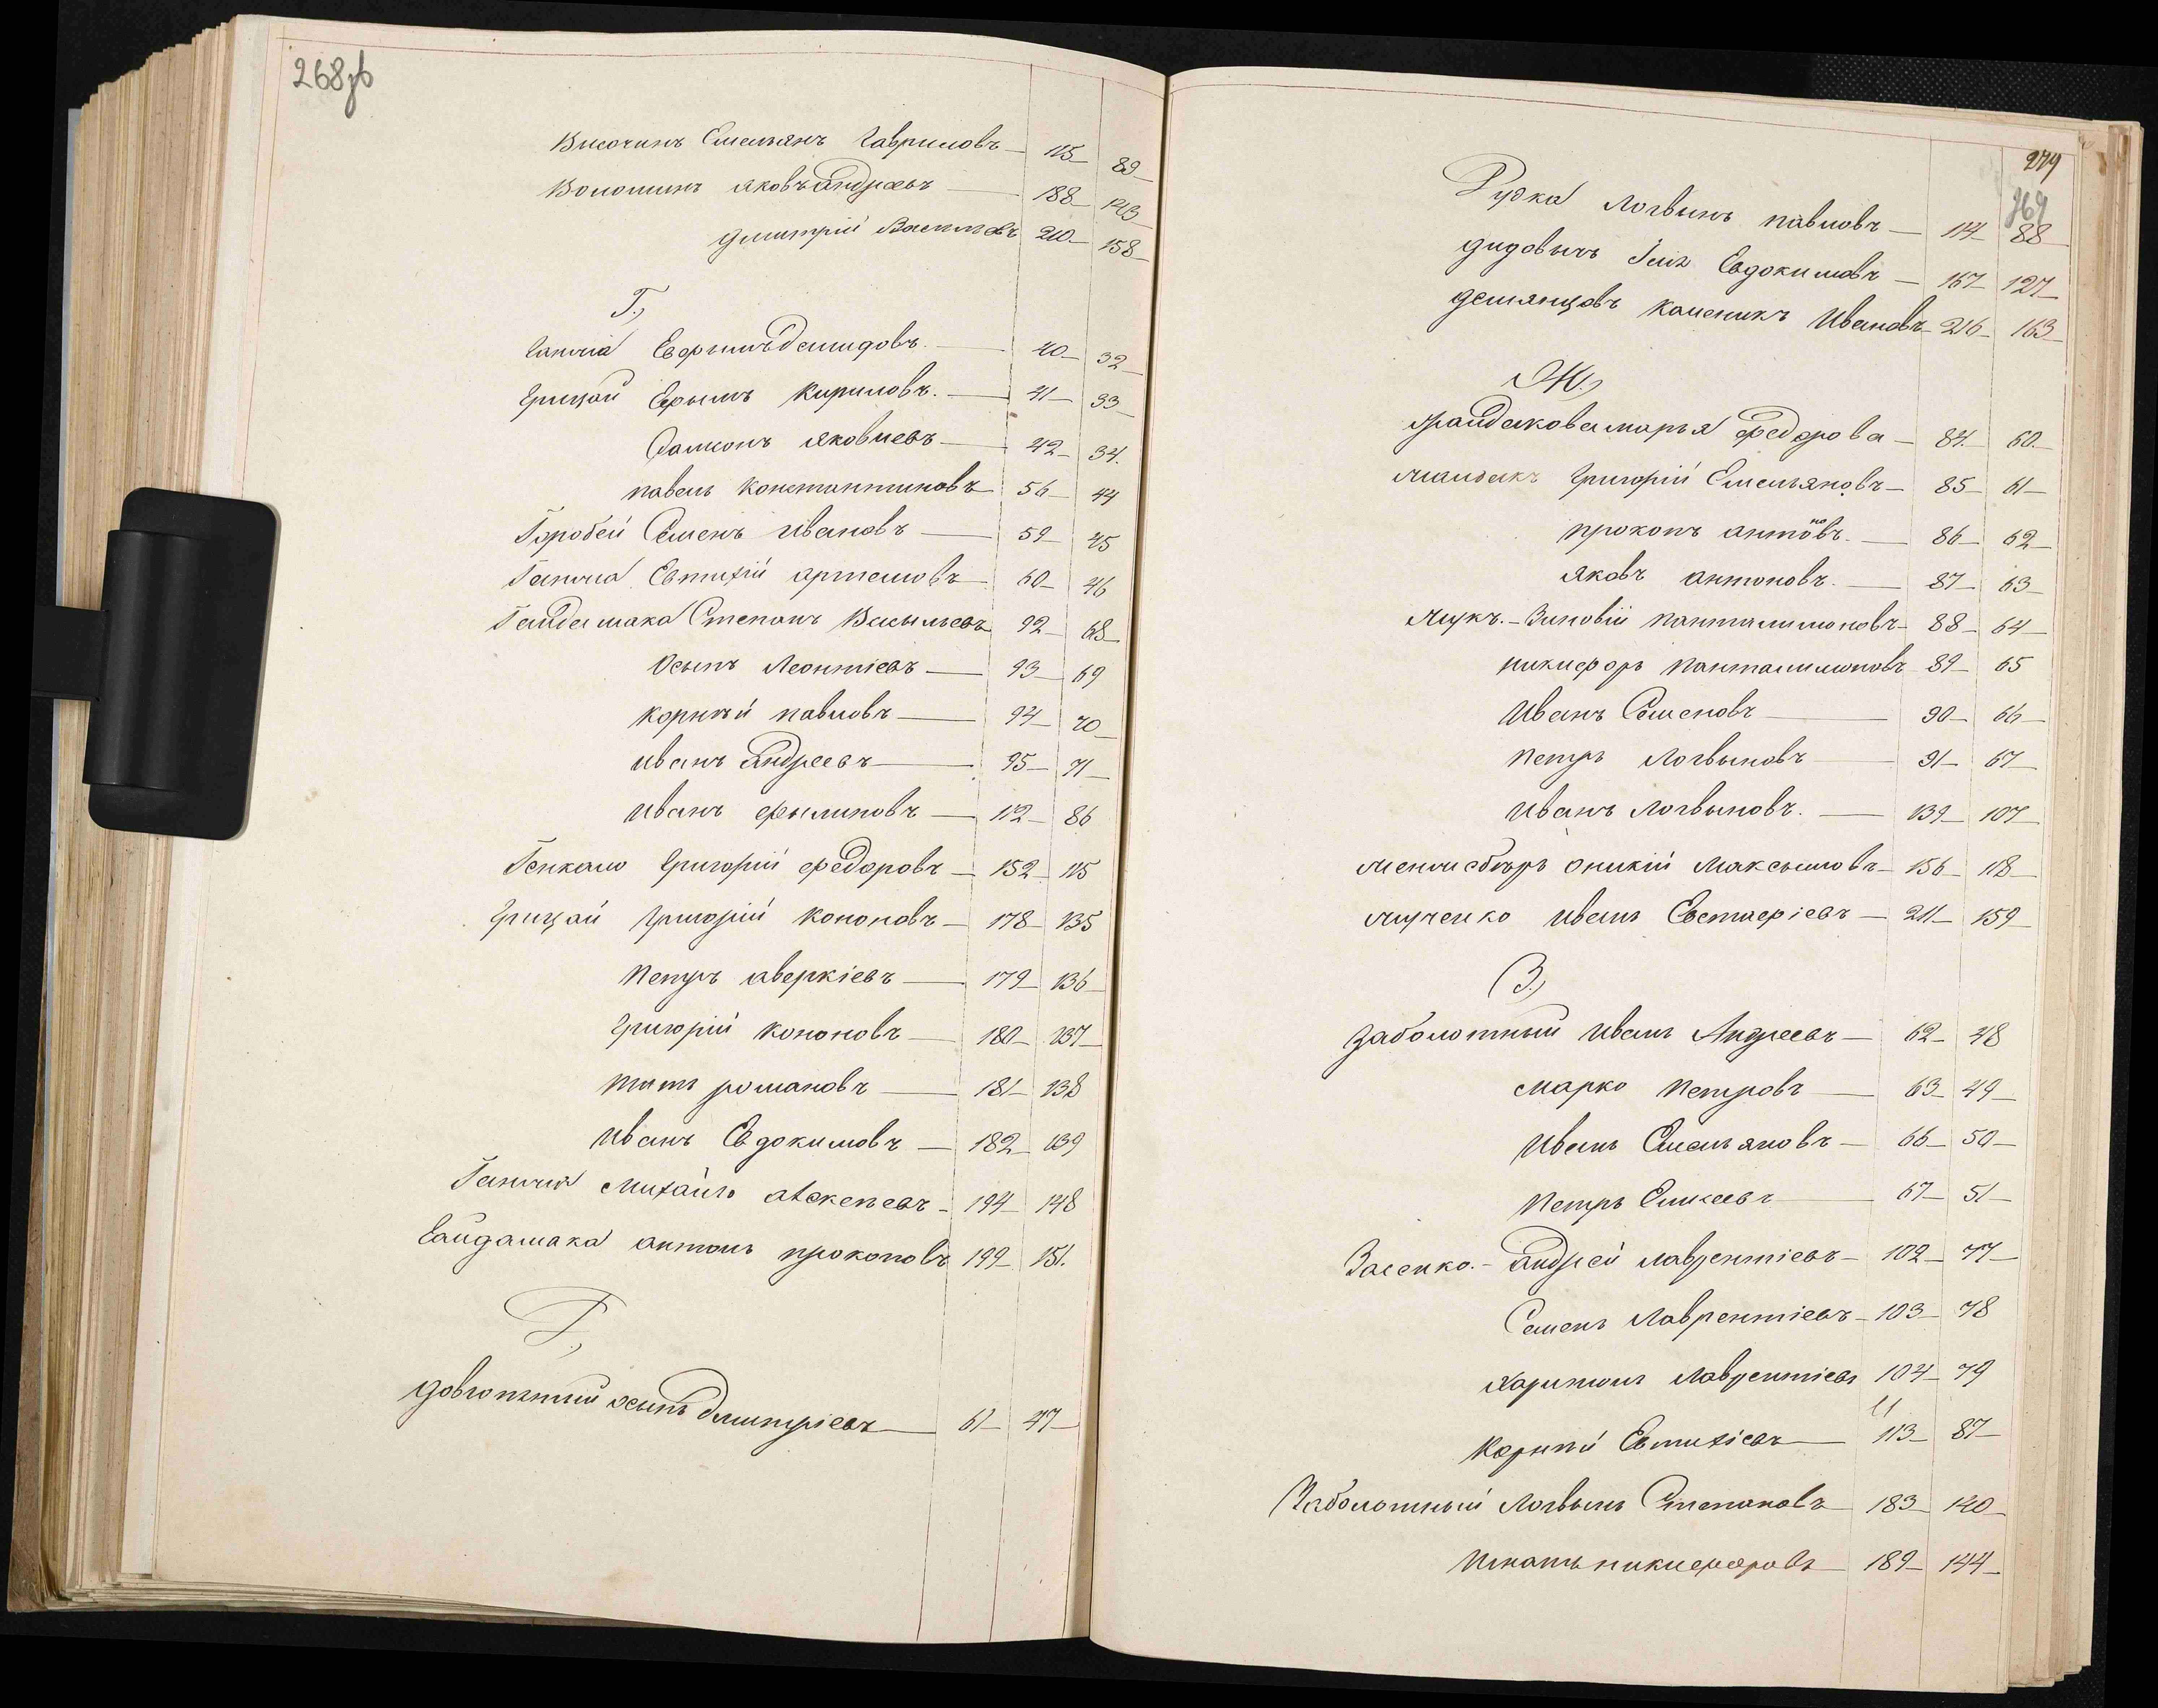 268зв
Височинъ Емельянъ Гавриловъ — 115 — 89 —
Волошинъ Яковъ Андреевъ — 188 — 143
Дмитрій Васильевъ 210 — 158 —
Г.,
Ганжа Ефрымъ Демидовъ — 40 — 32 —
Грицай Ефрымъ Кириловъ. — 41 — 33 —
Самсонъ Яковлевъ — 42 — 34.
Павелъ Константиновъ 56 — 44
Горобей Семенъ Ивановъ — 59 — 45
Ганжа Евтихій Артемовъ 60 — 46
Гайдамака Степанъ Васыльевъ 92 — 68 —
Осыпъ Леонтіевъ — 93 — 69
Корнѣй Павловъ — 94 — 70 —
Иванъ Андреевъ — 95 — 71 —
Иванъ Филиповъ — 112 — 86
Генкало Григорій Федоровъ — 152 — 115
Грицай Григорій Кононовъ — 178 — 135
Петръ Аверкіевъ — 179 — 136 —
Григорій Кононовъ — 180 — 137 —
Титъ Романовъ — 181 — 138
Иванъ Евдокимовъ — 182 — 139
Ганжа Михайло — 194 — 148
Гайдамака Антонъ Прокоповъ 199 — 151.
Довгопятый Осыпъ Дмитріевъ — 61 — 47 —
279
269
Дудка Логвынъ Павловъ — 114 — 88
Дидовичъ Евдокимовъ — 167 — 127 —
Демянцовъ Каленикъ Ивановъ — 216 — 163 —
Ж.,
Жайдакова Марья Федорова — 84. 60. —
Жайдакъ Григорій Емельяновъ — 85 — 61 —
Прокопъ Антоновъ. — 86 — 62 —
Яковъ Антоновъ. — 87 — 63 —
Жукъ. — Зиновій Панталимоновъ — 88 — 64 —
Никифоръ Панталимоновъ 89 — 65
Иванъ Семеновъ — 90 — 66 —
Петръ Логвыновъ — 91 — 67 —
Иванъ Логвыновъ. — 139 — 107 —
Оникій Максымовъ — 156 — 118 —
Жученко Иванъ Евстафіевъ — 211 — 159 —
З.,
Заболотный Иванъ Андреевъ — 62 — 48
Марко Петровъ — 63 — 49 —
Иванъ Емельяновъ — 66 — 50 —
Петръ — 67 — 51 —
Засенко. — Андрей Лаврентіевъ — 102 — 77 —
Семенъ Лаврентіевъ — 103 — 78
Харитонъ Лаврентіевъ 104 — 79
Корнѣй Евтихіевъ — 113 — 87 —
Заболотный Логвынъ Степановъ 183 — 140 —
Игнатъ Никифоровъ — 189 — 144 —